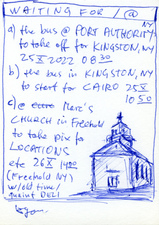 WAITING FOR / @
NY
a) the bus @ PORT AUTHORITY
to take off for KINGSTON, NY
25 X 2022 0830
b) the bus in KINGSTON, NY
to start for CAIRO 25 X
1050
c) @ Marc's
CHURCH in Freehold
to take pix for
LOCATIONS
etc 26 X 1400
(Freehold NY)
w/old time/
quaint DELI